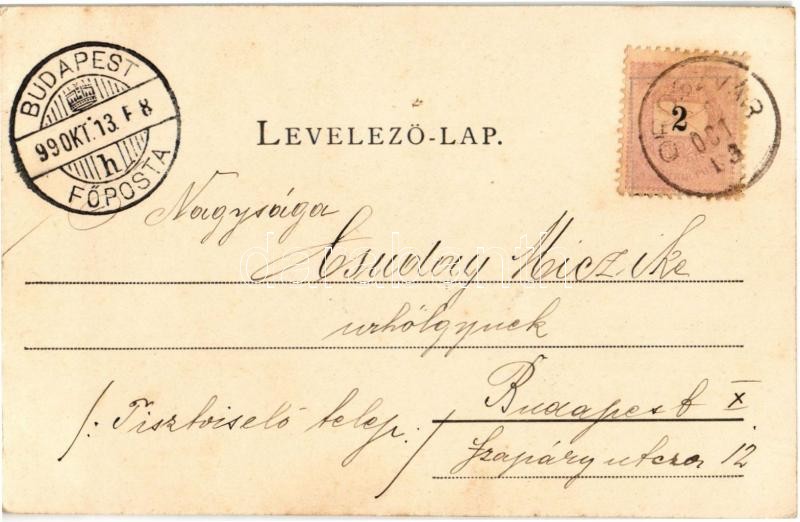 BUDAPEST
99 OKT. 13. F 8
h
FŐPOSTA
2
OCT
13
LEVELEZŐ-LAP.
Nagysága
Csuday Miczike
urhölgynek
Budapest X
/: Tisztviselő telep :/
Szapáry utcza 12